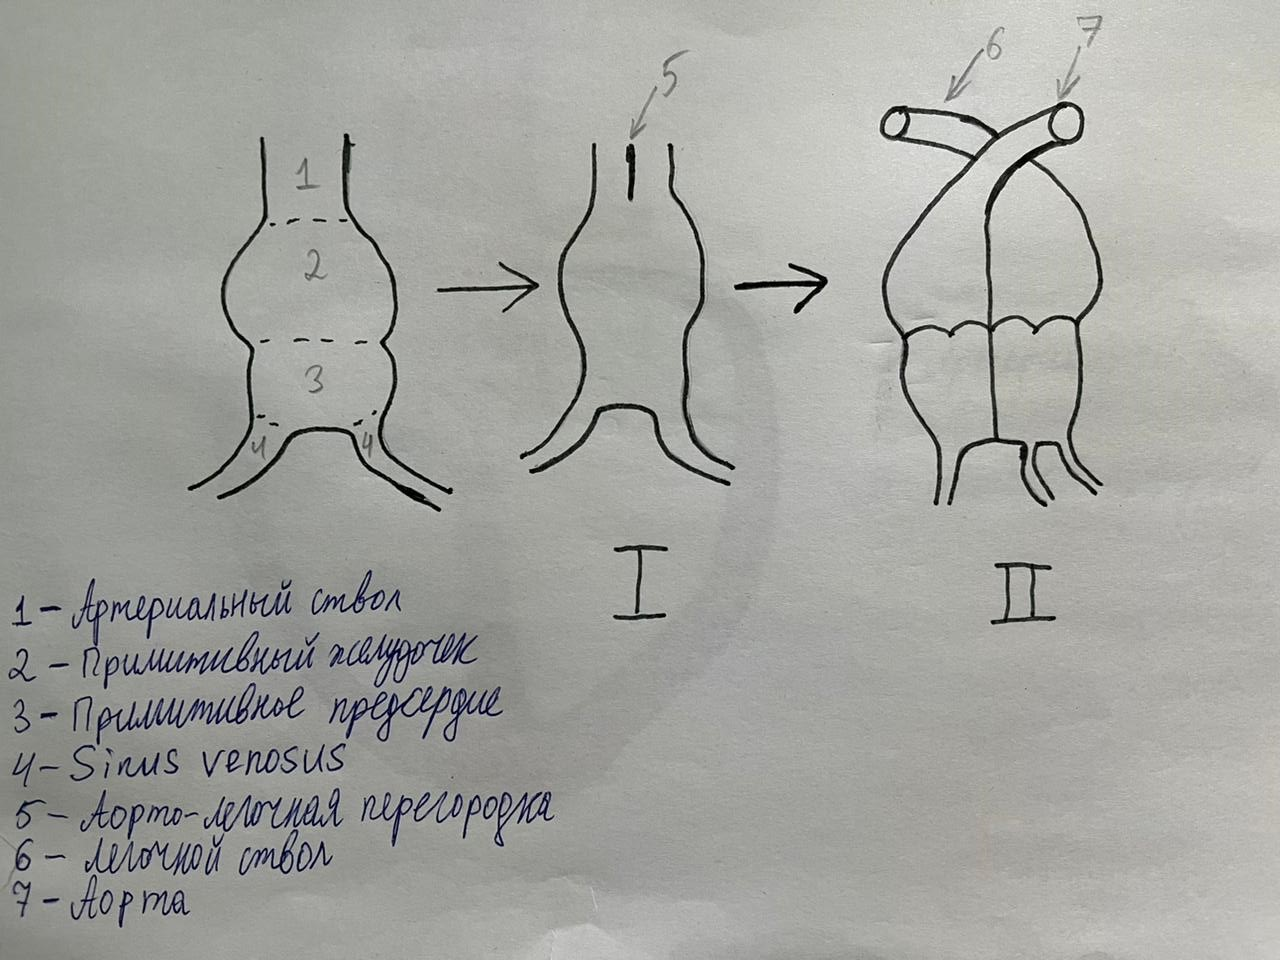 5
6
7
1
2
3
4
4
I
II
1 – Артериальный ствол
2 – Примитивный желудочек
3 – Примитивное предсердие
4 – Sinus venosus
5 – Аорто-легочная перегородка
6 – Легочной ствол
7 – Аорта